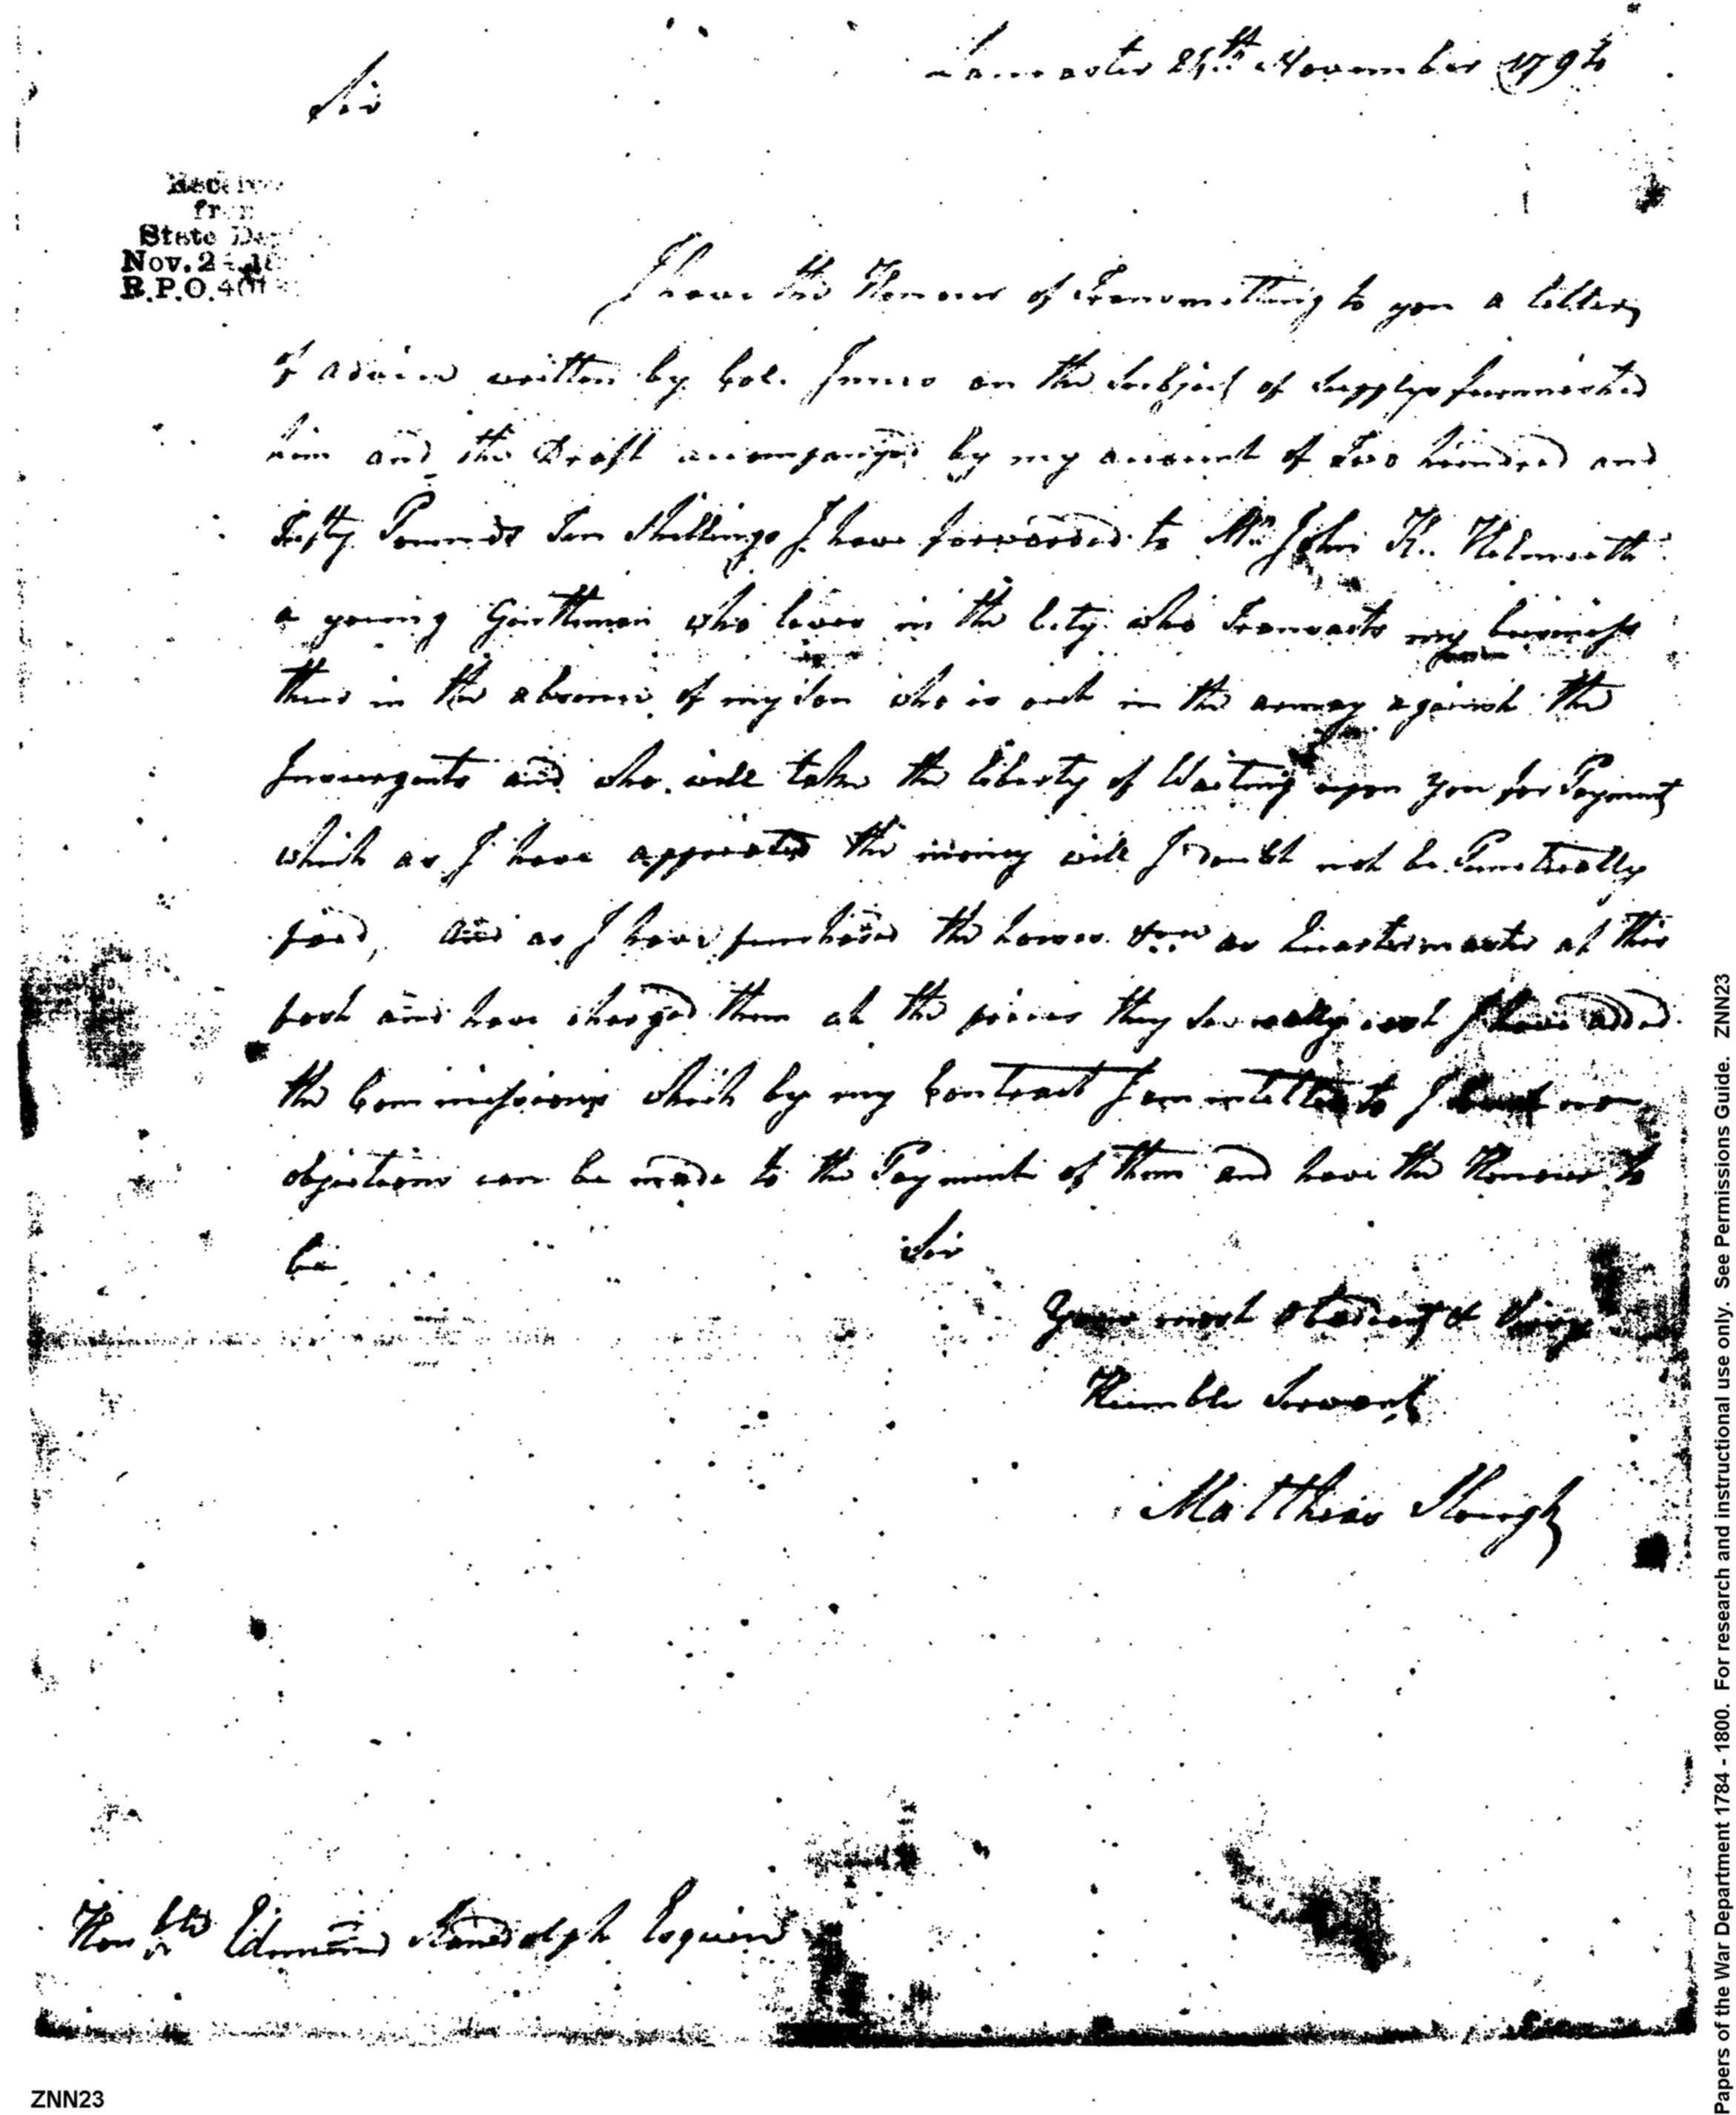 Lancaster 25th November 1794
Sir
State
Nov. 2
R.P.O. 401
I have the Honour of Transmitting to you a letter
of advice written by Col. Innes on the Subject of Supplys furnished
him and the Draft accompanyed by my account of Two hundred and
Fifty Pounds Ten Shillings I have forwarded to Mr. John K. Helmuth
a young Gentleman who lives in the City who Transacts my business
there in the absence of my Son who is out in the army against the
Insurgents and who will take the liberty of Waiting upon you for Payment
which as I have the money will I doubt not be Punctually
paid, and as I have purchased the horses as Quartermaster at this
post and have charged them at the prices they Severally cost I have added
the Commissions which by my Contract I am intitled to I no
objections can be made to the Payment of them and have the Honour to
be Sir
Your most obedient & Very
Humble Servant
Matthias Slough
Honble Edmund Randolph Esquire
ZNN23
Papers of the War Department 1784 - 1800. For research and instructional use only. See Permissions Guide. ZNN23